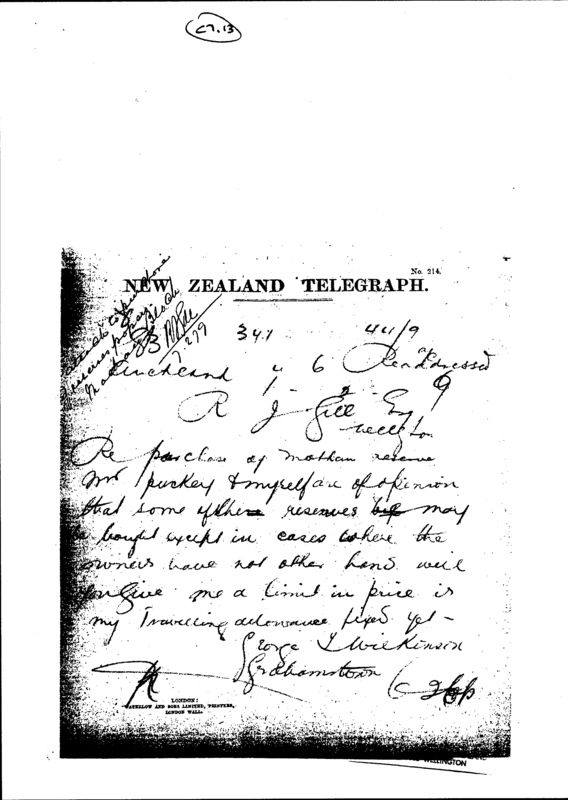 C7.13
No. 214.
NEW ZEALAND TELEGRAPH.
341 44/9
Auckland 4 6 Readdressed
R J Gill Esq 9
Wellgton
Re purchase of Mathau reserve
Mr Puckey & myself are of opinion
that some of the reserves may
be bought except in cases where the
owners have not other land will
you give me a limit in price is
my Travelling allowance fixed yet -
George T Wilkinson
Grahamstown
LONDON:
WATERLOW AND SONS LIMITED, PRINTERS,
LONDON WALL.
WELLINGTON